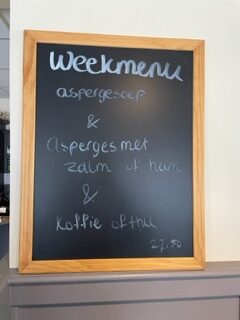 Weekmenu
aspergesoep
&
Asperges met
zalm of ham
&
koffie of thee
27,50